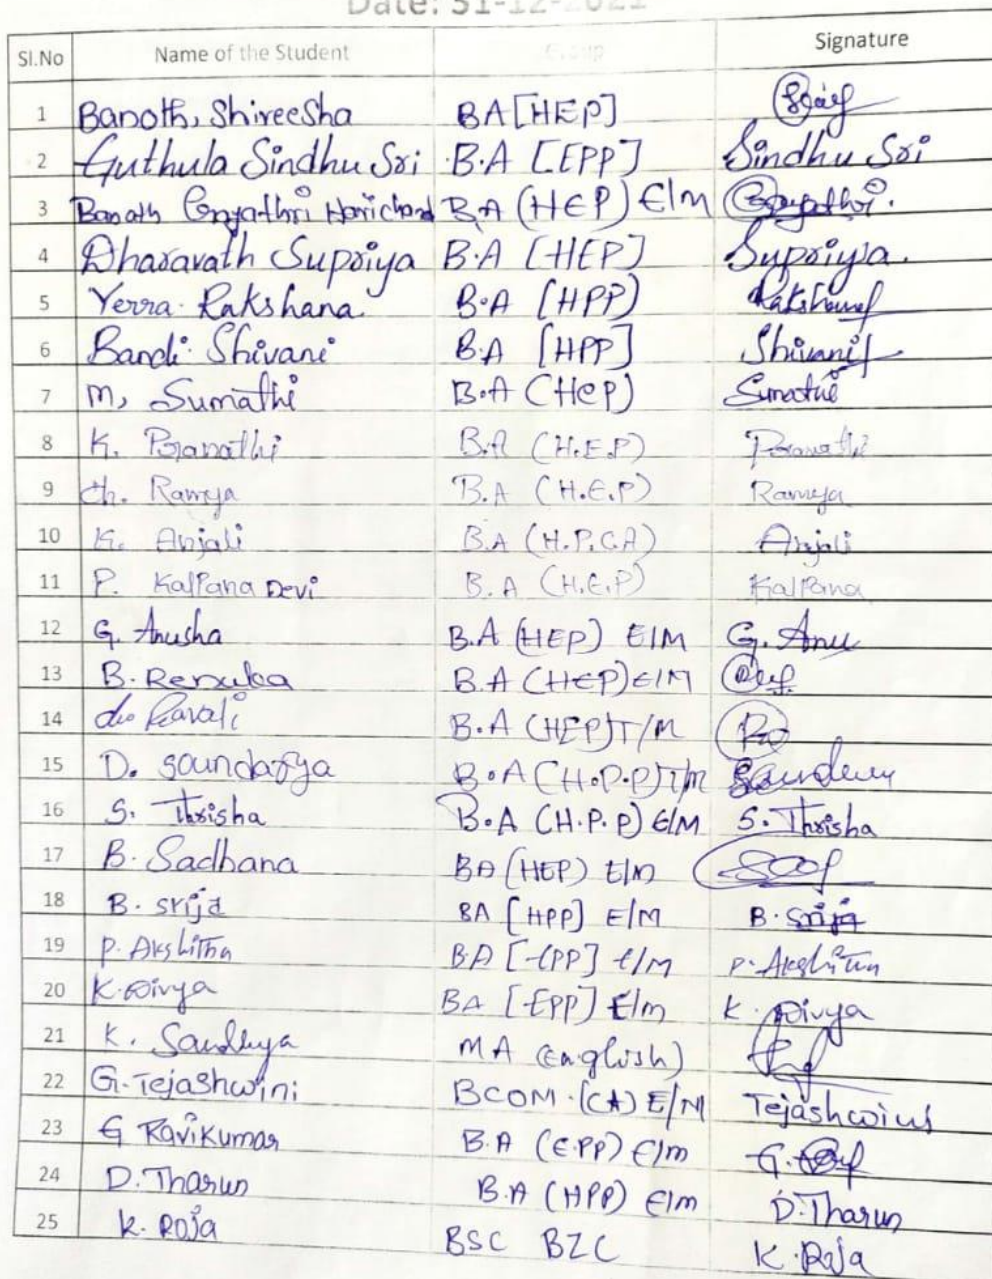 Date: 31-12-2021
Sl.No Name of the Student Group Signature
1 Banoth, Shireesha BA [HEP]
2 Guthula Sindhu Sri B.A [EPP] Sindhu Sri
3 Banoth Gayathri Harichand B.A (HEP) E/M Gayathri.
4 Dharavath Supriya B.A [HEP] Supriya.
5 Yerra. Rakshana. B.A [HPP) Rakshana
6 Bandi. Shivani B.A [HPP] Shivani
7 M, Sumathi B.A (HeP) Sumathi
8 K. Pranathi B.A (H.E.P) Pranathi
9 Ch. Ramya B.A (H.E.P) Ramya
10 K. Anjali B.A (H.P.CA) Anjali
11 P. Kalpana Devi B.A (H.E.P) Kalpana
12 G. Anusha B.A (HEP) E/M G. Anu
13 B. Renuka B.A (HEP) E/M
14 Kavali B.A (HEP) T/M
15 D. Soundarya B.A (H.P.P) T/M
16 S. Thrisha B.A (H.P.P) E/M S. Thrisha
17 B. Sadhana BA (HEP) E/M
18 B. Srija BA [HPP] E/M B. Srija
19 P. Akshitha BA [EPP] E/M P. Akshitha
20 K. Divya BA [EPP] E/m K. Divya
21 K. Sandhya MA (English)
22 G. Tejashwini BCOM. (CA) E/M Tejashwini
23 G Ravikumar B.A (E.PP) E/m G.
24 D. Tharun B.A (HPP) E/m D. Tharun
25 K. Roja BSC BZC K. Roja